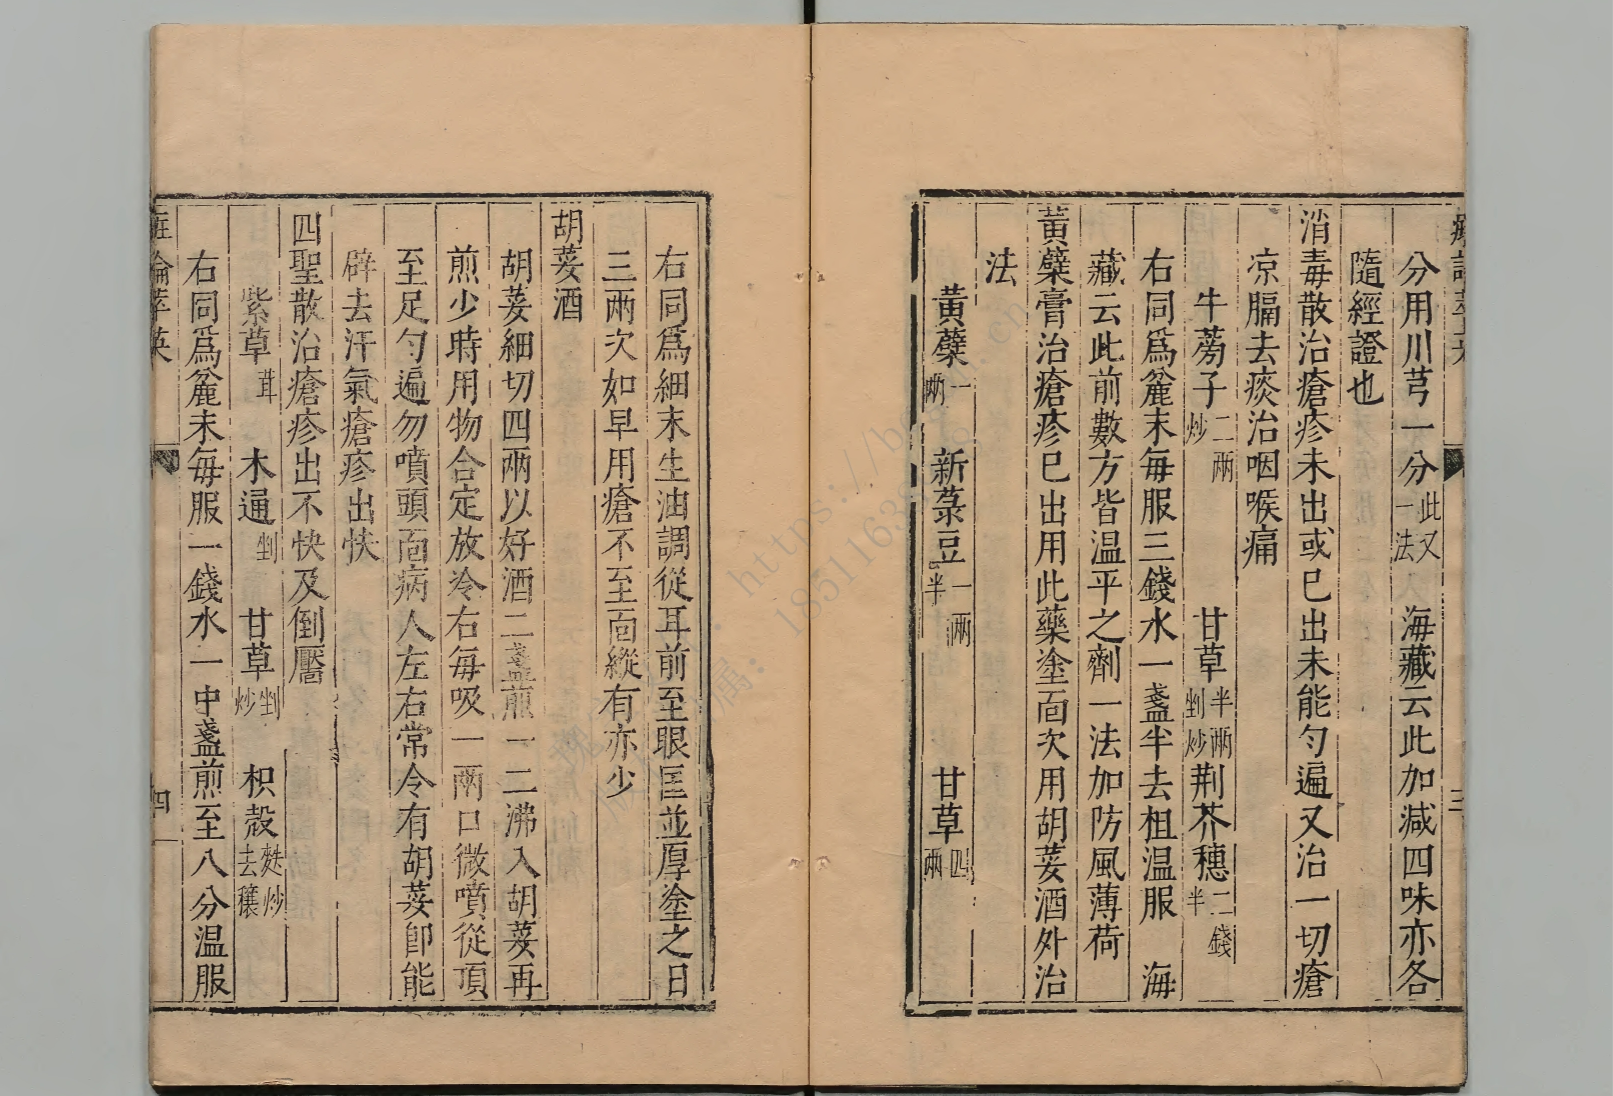 分用川芎一分此又一法 海藏云此加減四味亦各
隨經證也
消毒散治瘡疹未出或已出未能勻遍又治一切瘡
凉膈去痰治咽喉痛
牛蒡子二兩炒 甘草半兩剉炒 荆芥穗二錢半
右同爲麄末每服三錢水一盞半去柤温服 海
藏云此前數方皆温平之劑一法加防風薄荷
黃蘗膏治瘡疹已出用此藥塗面次用胡荽酒外治
法
黃蘗一兩 新菉豆一兩半 甘草四兩
右同爲細末生油調從耳前至眼匡並厚塗之日
三兩次如早用瘡不至面縱有亦少
胡荽酒
胡荽細切四兩以好酒二盞煎一二沸入胡荽再
煎少時用物合定放冷右每吸一兩口微噴從項
至足勻遍勿噴頭面病人左右常令有胡荽即能
辟去汗氣瘡疹出快
四聖散治瘡疹出不快及倒靨
紫草茸 木通剉 甘草剉炒 枳殼麩炒去穰
右同爲麄末每服一錢水一中盞煎至八分温服
四